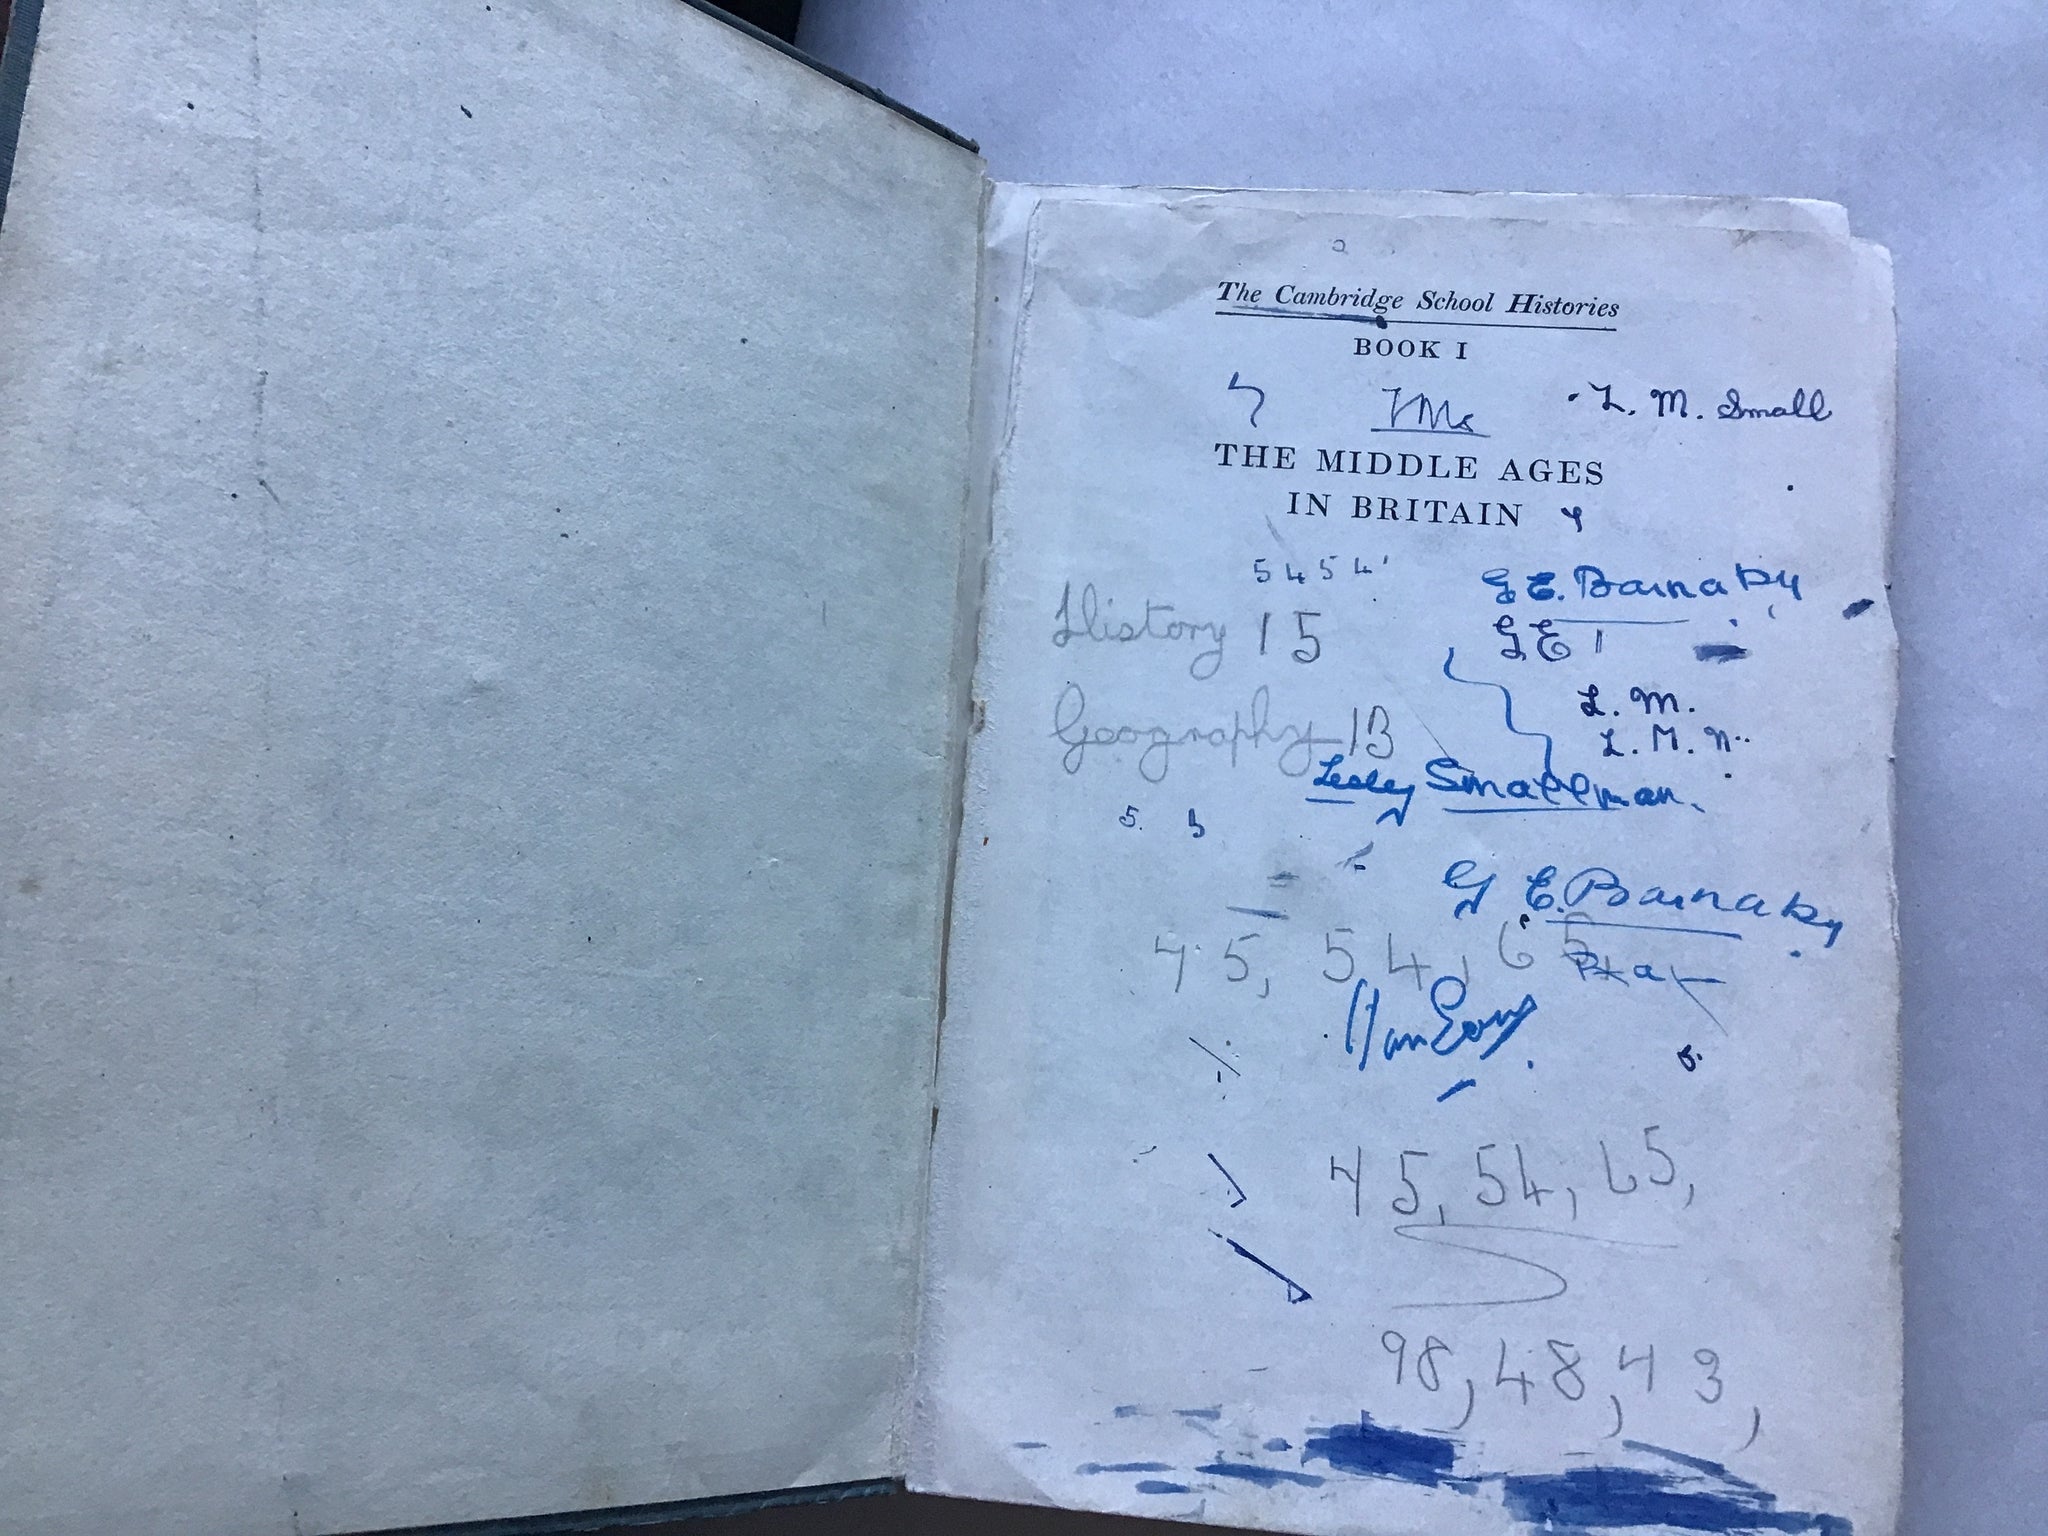 The Cambridge School Histories
BOOK I
L. M. Small
THE MIDDLE AGES
IN BRITAIN
5454
G E. Barnaby
History 15
G E
L. M.
Geography 13
L. M. N.
Lesley Smallman.
5. 5
G E. Barnaby
45, 54, 65
5.
45, 54, 65,
98, 48, 43,